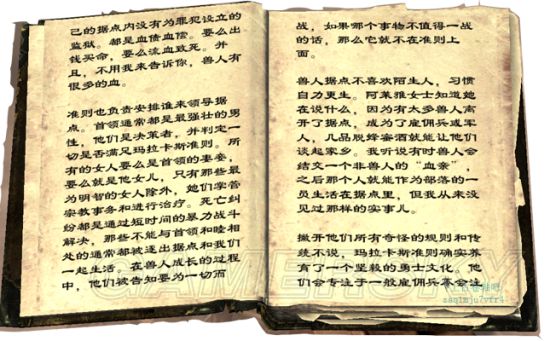 己的据点内没有为罪犯设立的
监狱。都是血债血偿。要么出
钱买命，要么流血致死。并
且，不用我来告诉你，兽人有
很多的血。
准则也负责安排谁来领导据
点。首领通常都是最强壮的男
性，他们是决策者，并判定一
性是否满足玛拉卡斯准则。所
有的女人要么是首领的妻妾，
要么就是他女儿，只有那些最
为明智的女人除外，她们掌管
宗教事务和进行治疗。死亡纠
纷都是通过短时间的暴力战斗
解决，那些不能与首领和睦相
处的通常都被逐出据点和我们
一起生活。在兽人成长的过程
中，他们被告知要为一切而
战，如果哪个事物不值得一战
的话，那么它就不在准则上
面。
兽人据点不喜欢陌生人，习惯
自力更生。阿莱雅女士知道她
在说什么，因为有太多兽人离
开了据点，成为了雇佣兵或军
人，几品脱蜂蜜酒就能让他们
谈起家乡。我听说有时兽人会
结交一个非兽人的“血亲”，
之后那个人就能作为部落的一
员生活在据点里，但我从来没
见过那样的实事儿。
撇开他们所有奇怪的规则和传
统不说，玛拉卡斯准则确实养
育了一个坚毅的勇士文化。他
们会专注于一般雇佣兵革命注
GAMERSKY